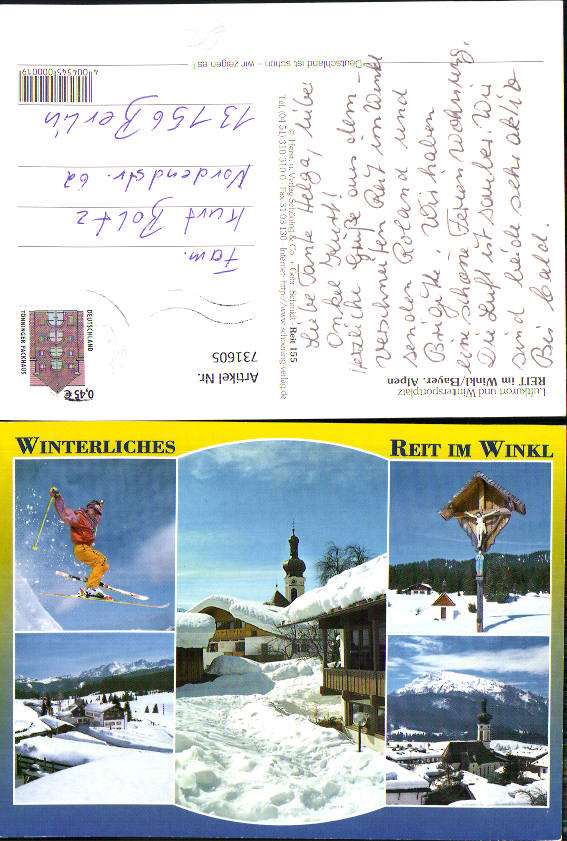 Luftkurort und Wintersportplatz
REIT im Winkl/Bayer. Alpen
Liebe Tante Helga, lieber
Onkel Kurt!
Herzliche Grüße aus dem
verschneiten Reit im Winkl
senden Roland und
Brigitte. Wir haben
eine schöne Ferienwohnung.
Die Luft ist sauber. Wir
sind beide sehr aktiv
Bis bald.
© Herst. u. Verlag Schöning & Co. + Gebr. Schmidt Reit 155
Tel. (04 51) 310 310-0 Fax 31 03 130 Internet: http://www.schoening-verlag.de
Deutschland ist schön – wir zeigen es!
Artikel Nr.
731605
DEUTSCHLAND
TÖNNINGER PACKHAUS
0,45 €
Fam.
Kurt Boltz
Nordendstr. 62
13156 Berlin
4 004545 000019
WINTERLICHES
REIT IM WINKL